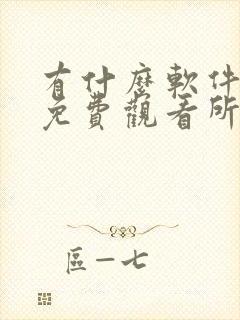 有什麼軟件
免費觀看所
區一七